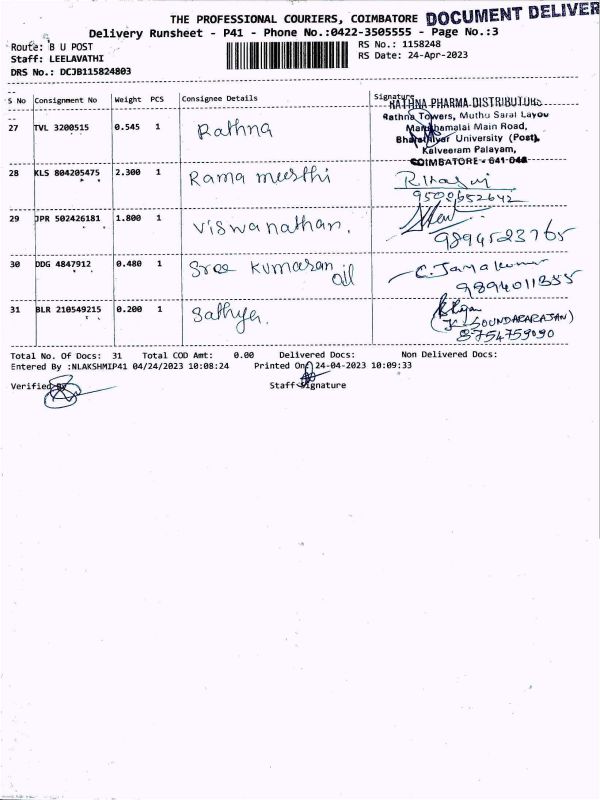 THE PROFESSIONAL COURIERS, COIMBATORE DOCUMENT DELIVER
Delivery Runsheet - P41 - Phone No.:0422-3505555 - Page No.:3
Route: B U POST
Staff: LEELAVATHI
DRS No.: DCJB115824803
RS No.: 1158248
RS Date: 24-Apr-2023
S No Consignment No Weight PCS Consignee Details Signature
27 TVL 3200515 0.545 1 Rathna
RATHNA PHARMA DISTRIBUTORS
Rathna Towers, Muthu Sarai Layou
Maruthamalai Main Road,
Bharathiyar University (Post),
Kalveeram Palayam,
COIMBATORE - 641 046
28 KLS 804205475 2.300 1 Rama murthi
9508652642
29 JPR 502426181 1.800 1 Viswanathan.
9894523765
30 DDG 4847912 0.480 1 Sree Kumaran oil
C. Jayakumar
9894011355
31 BLR 210549215 0.200 1 Sathya.
(K. SOUNDARARAJAN)
8754759090
Total No. Of Docs: 31 Total COD Amt: 0.00 Delivered Docs: Non Delivered Docs:
Entered By :NLAKSHMIP41 04/24/2023 10:08:24 Printed On: 24-04-2023 10:09:33
Verified By Staff Signature